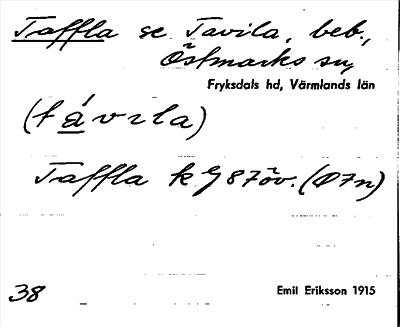 Taffla se Tavila, beb.,
Östmarks sn,
Fryksdals hd, Värmlands län
(távıla)
Taffla k 87öv. (Ø7n)
38
Emil Eriksson 1915